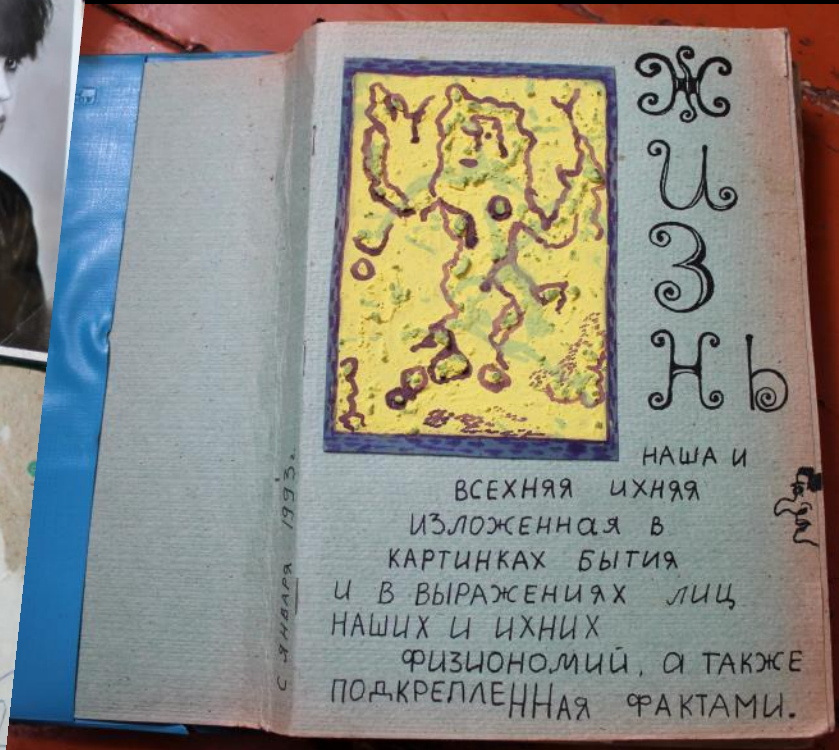 ЖИЗНЬ
НАША И
ВСЕХНЯЯ ИХНЯЯ
ИЗЛОЖЕННАЯ В
КАРТИНКАХ БЫТИЯ
И В ВЫРАЖЕНИЯХ ЛИЦ
НАШИХ И ИХНИХ
ФИЗИОНОМИЙ, А ТАКЖЕ
ПОДКРЕПЛЕННАЯ ФАКТАМИ.
С ЯНВАРЯ 1993г.